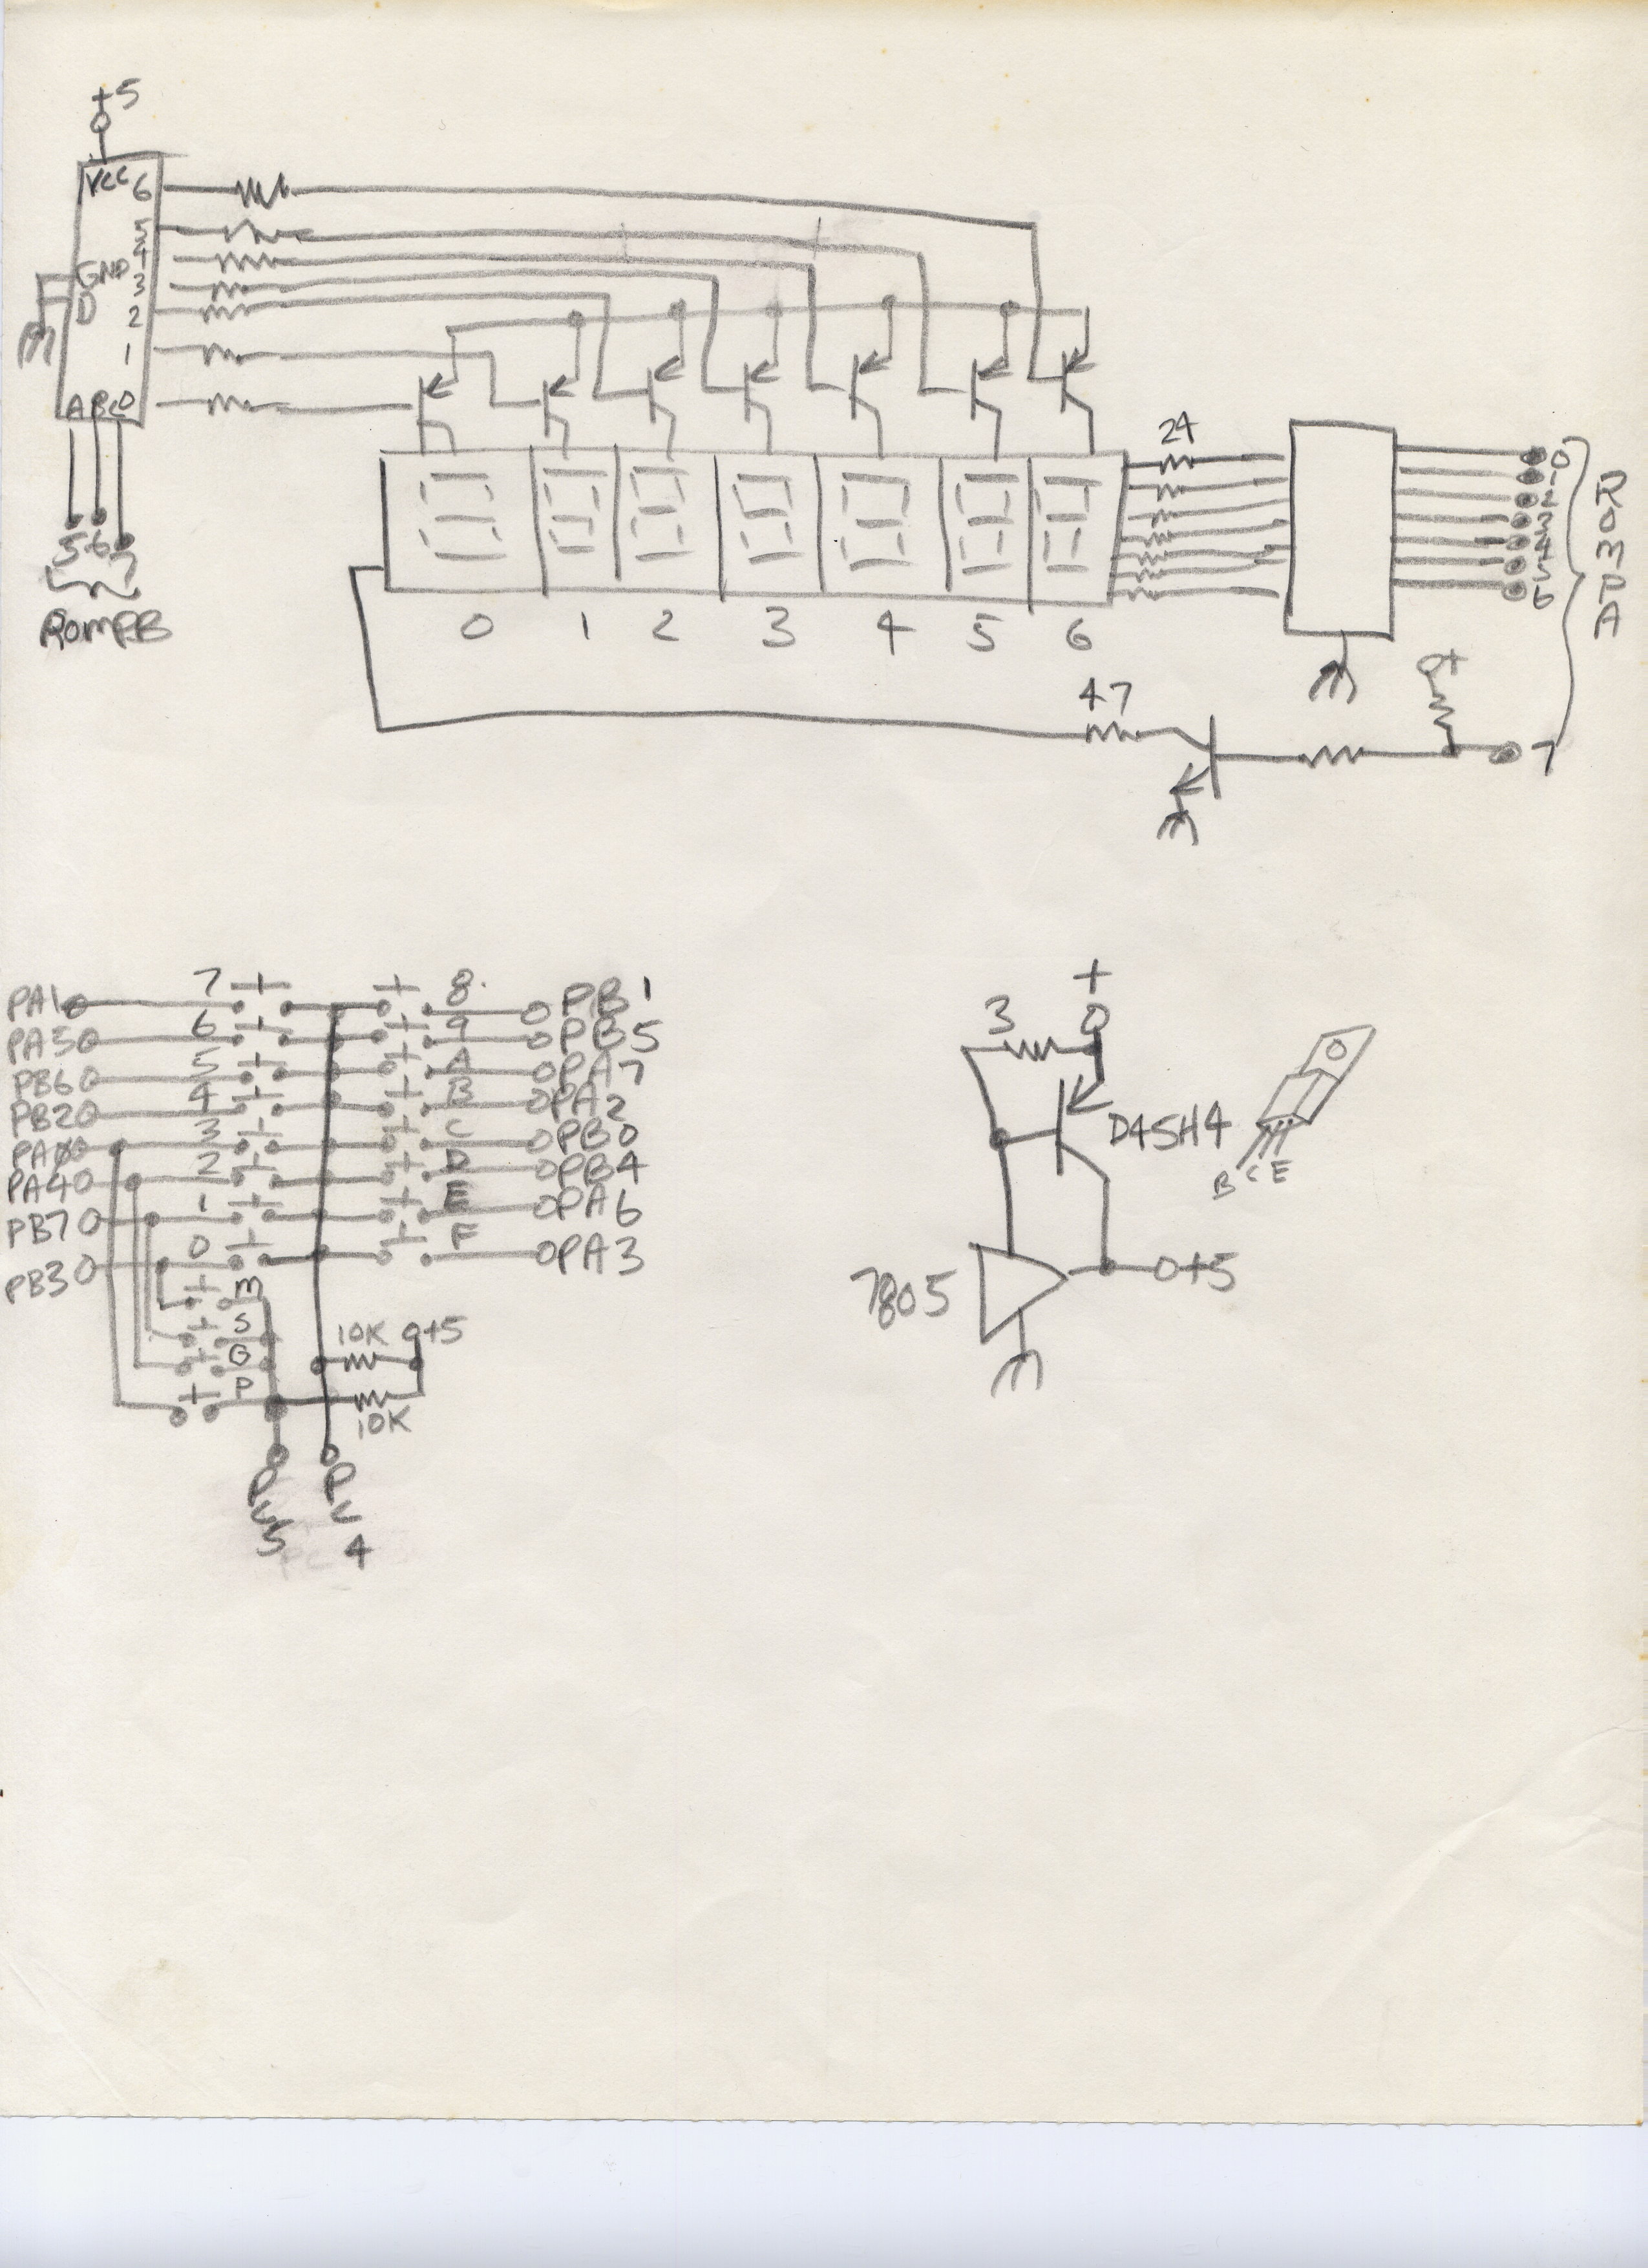 +5
VCC 6
5
4
GND 3
D 2
1
A B C 0
5 6 7
ROMPB
24
0
1
2
3
4
5
6
ROMPA
0 1 2 3 4 5 6
47
+
7
PA1 7 8 PB1
PA5 6 9 PB5
PB6 5 A PA7
PB2 4 B PA2
PA0 3 C PB0
PA4 2 D PB4
PB7 1 E PA6
PB3 0 F PA3
M
S
G
P
10K +5
10K
PC5
PC4
PC
+
3
D45H4
B C E
7805
+5